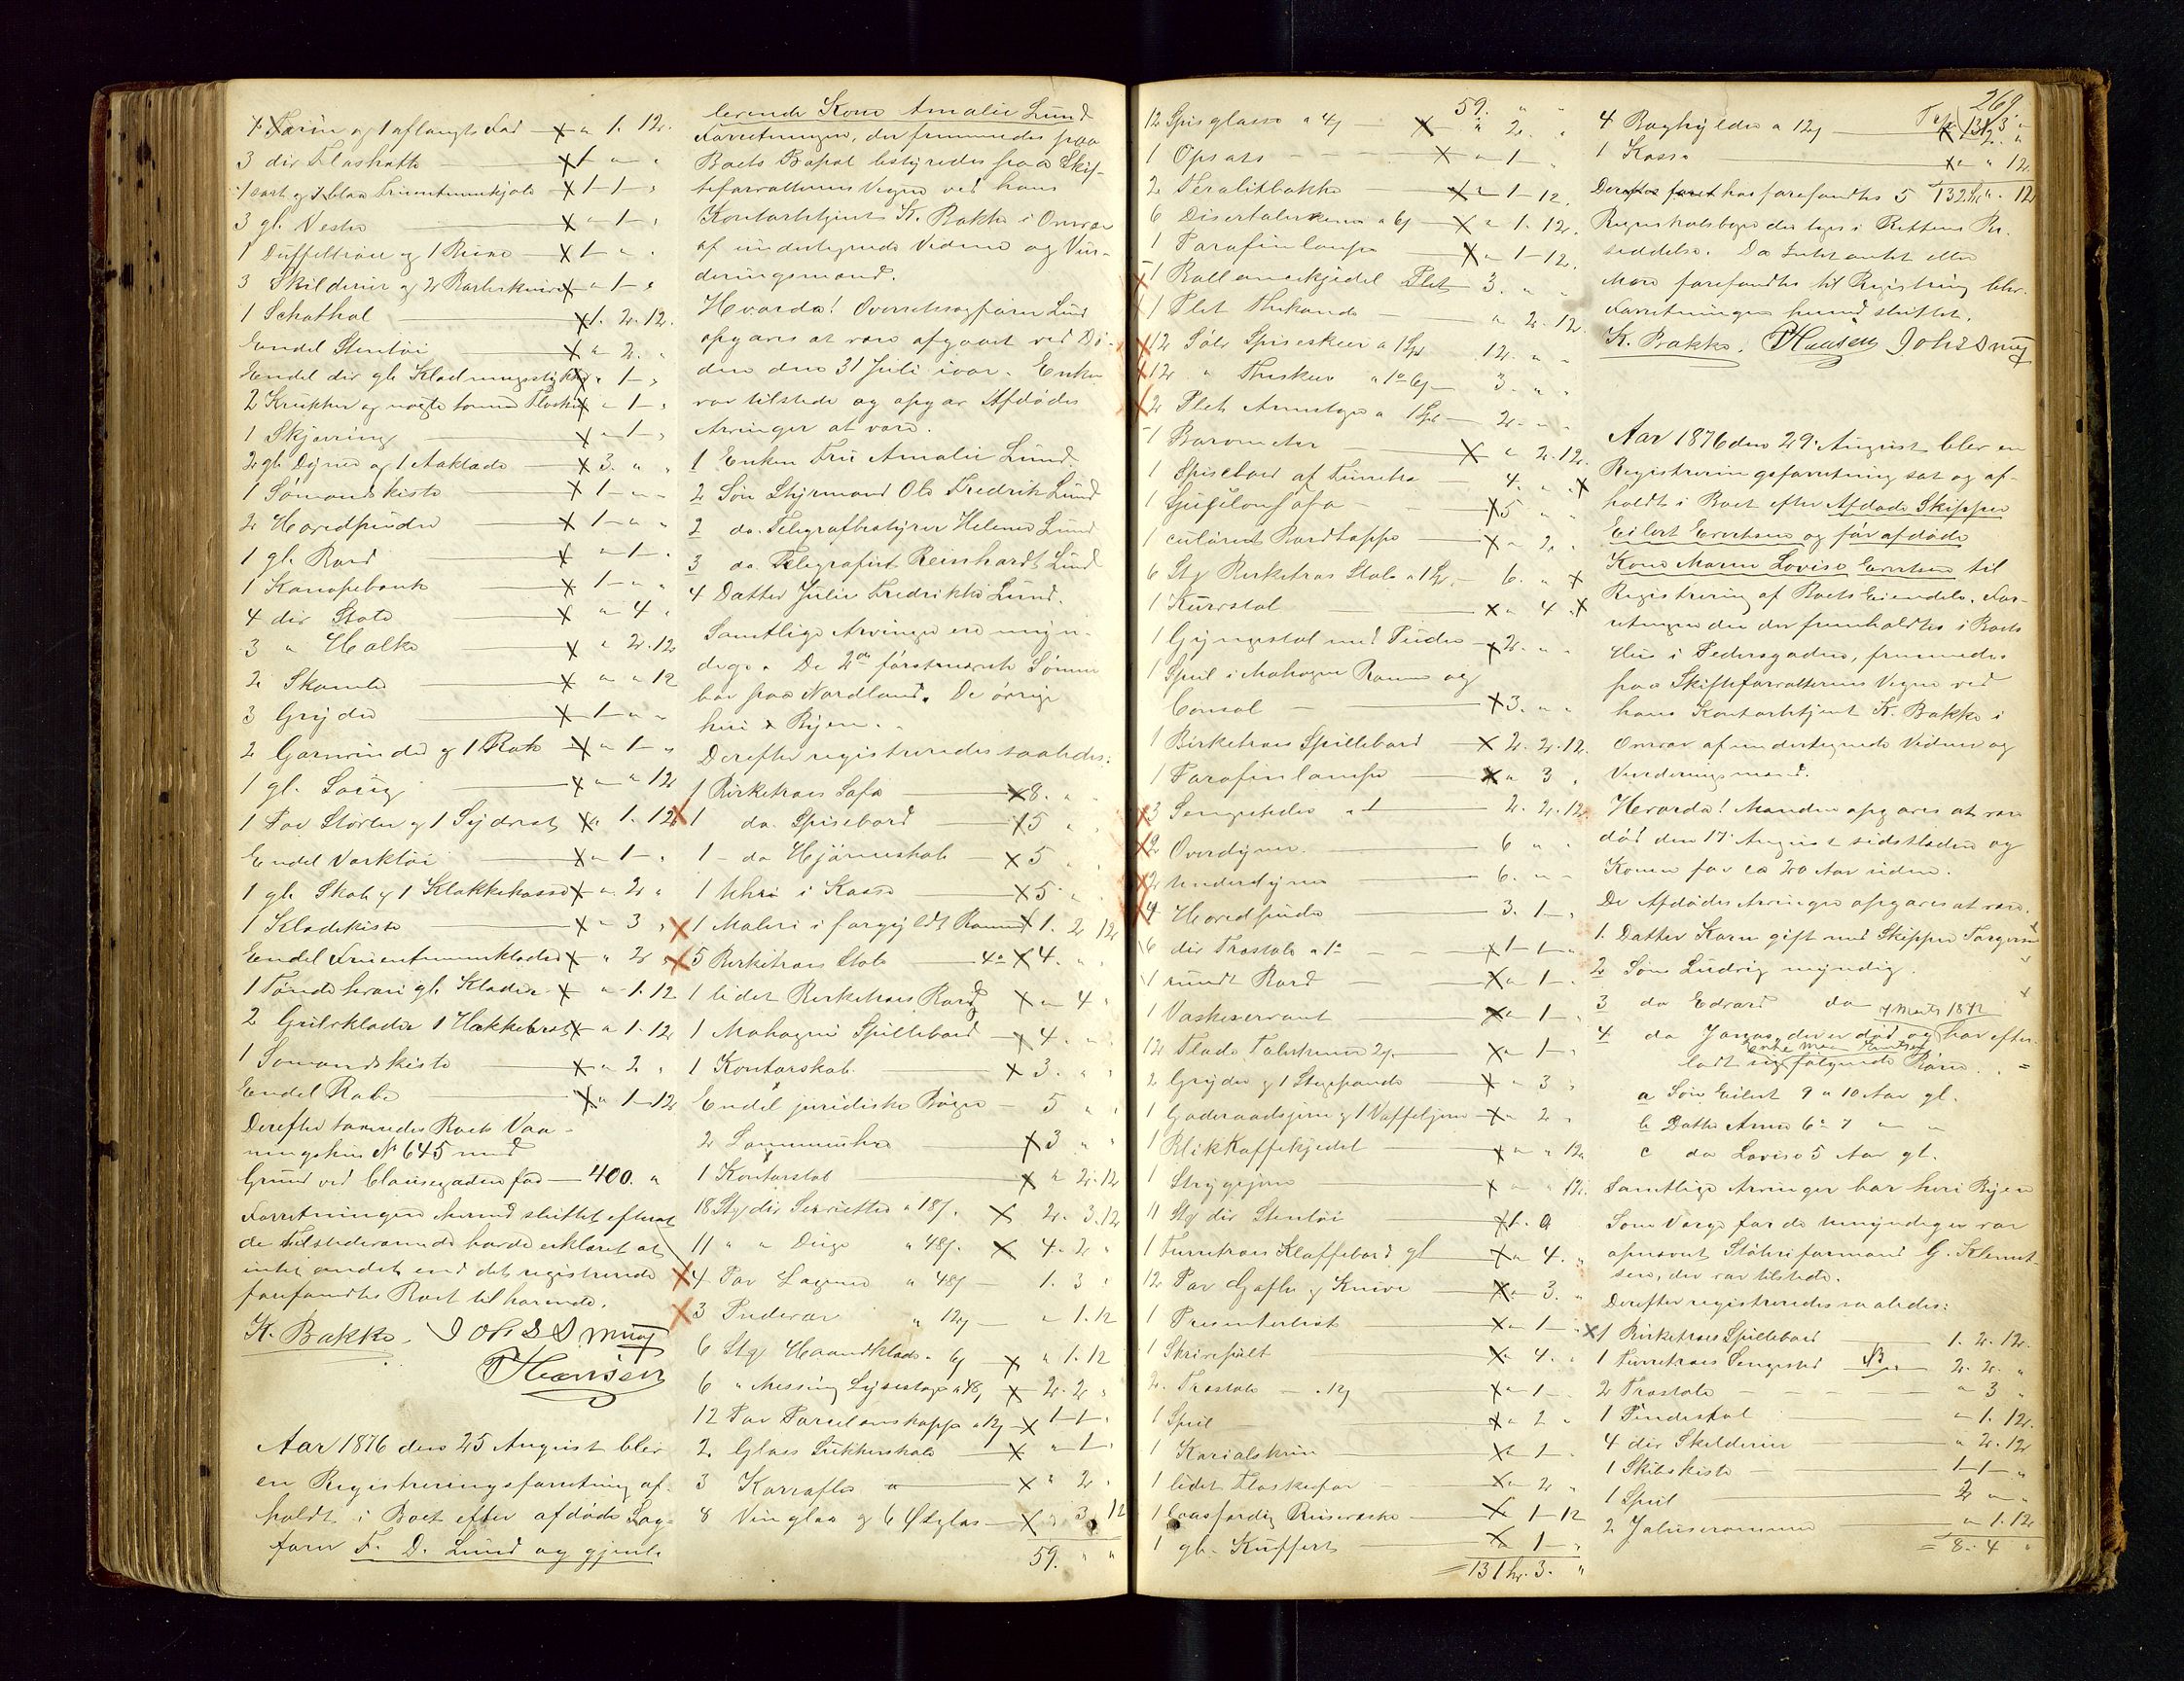 1 Tørin og 1 aflangt Fad X " 1. 12.
3 div Flashatte X 1 " "
1 sort og 1 blaa Fruentimmerkjole X 1 - 1 - "
3 gl. Veste X " 1 - "
1 Duffelstrøie og 1 Buxe X 1 - " "
3 Skilderier og 2 Barberknive X " 1 - "
1 Schathol X 1. 2. 12.
Endel Stentøi X " 2. "
Endel div gl. Klædningsstykker X " 1 - "
2 Krukker og nogle tomme Flasker X " 1 - "
1 Skjærring X " 1 - "
2 gl. Dyner og 1 Aaklæde X 3. " "
1 Sømandskiste X 1 - " "
2 Hovedpuder X 1 - " "
1 gl. Bord X " 1 - "
1 Kanapebænk X 1 - " "
4 div Stole X " 4 "
3 " Holke X " 2. 12
2 Skamler X " " 12
3 Gryder X 1 - " "
2 Garnvinder og 1 Rok X " 1 - "
1 gl. Seng X " " 12
1 Par Støvler og 1 Sydvest X " 1. 12
Endel Værktøi X " 1 - "
1 gl. Skab og 1 Klokkekasse X " 2 "
1 Klædekiste X " 3 "
Endel Fruentimmerklæder X " 2 "
1 Tønde hvori gl. Klæder X " 1. 12
2 Gulvklæder 1 Hakkebræt X " 1. 12
1 Sømandskiste X " 2 "
Endel Rabe X " 1 - 12
Derefter taxeredes Boets Vaa-
ningshus No 645 med
Grund ved Clausegaden for 400. "
Forretningen hermed sluttet efterat
de Tilstedeværende havde erklæret at
intet andet end det registrerede
forefandtes Boet tilhørende.
K. Bakke. Johs Smug
P Hansen
Aar 1876 den 25 August blev
en Registreringsforretning af-
holdt i Boet efter afdøde Sag-
fører F. D. Lund og gjenle-
levende Kone Amalie Lund
Forretningen, der fremmedes paa
Boets Bopæl bestyredes paa Skif-
teforvalterens Vegne ved hans
Kontorbetjent K. Bakke i Overvær
af undertegnede Vidner og Vur-
deringsmænd.
Hvorda! Overretssagfører Lund
opgaves at være afgaaet ved Dø-
den den 31 Juli i aar. Enken
var tilstede og opgav Afdødes
Arvinger at være.
1 Enken Fru Amalie Lund.
2 Søn Styrmand Ole Fredrik Lund
2 do. Telegrafbestyrer Helemer Lund
3 do. Telegrafist Reinhardt Lund
4 Datter Julie Fredrikke Lund.
Samtlige Arvinger ere myn-
dige. De 2de førstnævnte Sønner
bor paa Nordland. De øvrige
heri Byen.
Derefter registreredes saaledes:
1 Birketræes Sofa X 8. " "
X 1 do. Spisebord X 5 " "
1 - do Hjørneskab X 5 " "
1 Uhr i Kasse X 5 " "
X 1 Maleri i forgyldt Ramme X 1. 2 12
X 5 Birketræes Stole 4" X 4. " "
1 lidet Birketræes Bord X " 4 "
1 Mahogni Spillebord X 4. " "
1 Kontorskab X 3. " "
Endel juridiske Bøger 5 " "
2 Lommeuhre X 3 " "
1 Kontorstol X " 2. 12
18 Stk div Servietter a 18 s. X 2. 3. 12
11 " " Duge " 48 s. X 4. 2 "
X 4 Par Lagener " 48 s 1. 3 "
X 3 Pudevar " 12 s " 1. 12
6 Stk Haandklæder " 6 s X " 1. 12
6 " Messing Lysestager a 48 s X 2. 2 "
12 Par Porcelænskopper a 12 s X 1 - 1 - "
2 Glas Sukkerskaale X " 1 - "
3 Karrafler X " 2 "
8 Vinglas og 6 Ølglas X " 3. 12
59. " "
269.
59. " "
12 Spisglasse a 4 s X " 2. "
1 Opsats X " 1 - "
2 Theralitbakke X " 1 - 12.
6 Disertalerkener a 6 s X " 1. 12.
1 Parafinlampe X " 1 - 12.
X 1 Ballancekjedel Plet 3. " "
1 Plet Thekande " 2. 12.
X 12 Sølv Spiseskeer a 1 Spd 12. " "
X 12 " Theskeer " 1" 6 s 3. " "
X 2 Plet Armstager a 1 Spd 2. " "
1 Barometer X " 2. 12.
1 Spisebord af Furutræ 4. " " X
1 Gusjelonsofa X 5 " "
1 culørent Bordtæppe X " 2. "
6 Stk Birketræs Stole a 1 Sp. 6. " X
1 Kurvstol X " 4 X
1 Gyngestol med Puder X 2. " "
1 Speil i Mahogni Ramme og
Consol X 3. " "
1 Birketræes Spillebord X 2. 2. 12.
1 Parafinlampe X " 3 "
X 3 Sengesteder 2. 2. 12.
X 2 Overdyner 6 " "
X 2 Underdyner 6. " "
X 4 Hovedpuder 3. 1 - "
6 div Træstole a 1" X 1 - 1 - "
1 rundt Bord X " 1 - "
1 Vaskeservant X " 1 - "
12 Flade Talerkener 2 s. X " 1 - "
2 Gryder og 1 Stegepande X " 3 "
1 Goderaadsjern og 1 Vaffeljern X " 2 "
1 Blik Kaffekjedel X " " 12
1 Strygejern X " " 12.
11 Stk div Stentøi X 1. "
1 Furutræes Klaffebord gl X " 4. "
12 Par Gafler og Knive X " 3. "
1 Presenterbret X " 1 - "
1 Skrivepult X " 4. "
2. Træstole " 12 s X " 1 - "
1 Speil X " 2 "
1 Karialskrin X " 1 - "
1 lidet Flaskefor X " 2 "
1 laasfærdig Reisevæske X " 1 - 12
1 gl. Kuffert X " 1 - "
= 131 Spd. 3. "
Tsp. 131. 3. "
4 Baghylder a 12 s X " 2. "
1 Kasse X " " 12
Derefter forefandtes 5 132 Sp. " 12
Regnskabsbøger der toges i Rettens Be-
siddelse. Da Intet andet eller
Mere forefandtes til Registring blev
Forretningen hermed sluttet.
K. Bakke. P Hansen Johs Smug
Aar 1876 den 29. August blev en
Registreringsforretning sat og af-
holdt i Boet efter Afdøde Skipper
Eilert Evertsen og før afdøde
Kone Maren Lovise Evertsen til
Registrering af Boets Eiendele. For-
retningen der fremholdtes i Boets
Hus i Pedersgaden, fremmedes
paa Skifteforvalterens Vegne ved
hans Kontorbetjent K. Bakke i
Overvær af undertegnede Vidner og
Vurderingsmænd.
Hvorda! Manden opgaves at være
død den 17. August sidstleden og
Konen for ca 20 Aar siden.
De Afdødes Arvinger opgaves at være.
1. Datter Karen gift med Skipper Torgersen
2 Søn Ludvig myndig.
3 do Edvard do
7 Marts 1872
4 do Jonas, der er død og har efter-
Enke
ladt sig følgende Børn.
a Søn Eilert 9 a 10 Aar gl.
b Datter Anna 6 a 7 " "
c do Lovise 5 Aar gl.
Samtlige Arvinger bor heri Byen
Som Værge for de Umyndige var
opnævnt Støberiformand G. Klemet-
sen, der var tilstede.
Derefter registreredes saaledes:
X 1 Birketræes Spillebord 1. 2. 12.
1 Furutræes Sengested 2. 2. "
2 Træstole " 3 "
1 Pindestol " 1. 12.
4 div Skilderier " 2. 12
1 Skibskiste 1 - 1 - "
1 Speil 2 " "
2 Jalusirammer " 1. 12
= 8. 4 "